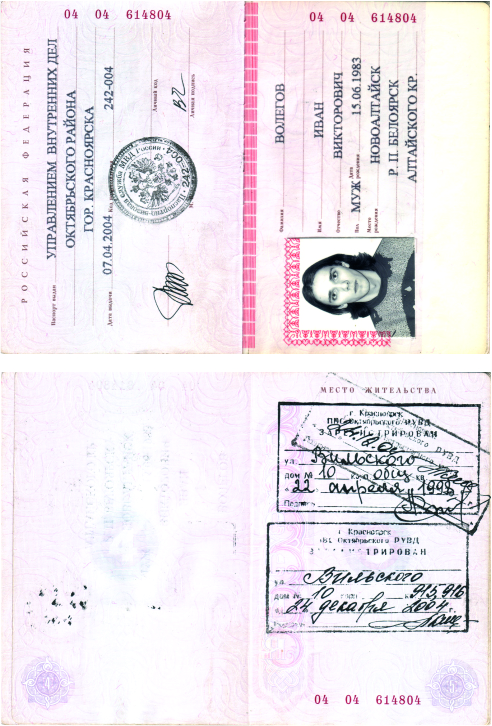 04 04 614804
РОССИЙСКАЯ ФЕДЕРАЦИЯ
Паспорт выдан УПРАВЛЕНИЕМ ВНУТРЕННИХ ДЕЛ
ОКТЯБРЬСКОГО РАЙОНА
ГОР. КРАСНОЯРСКА
Дата выдачи 07.04.2004 Код 242-004
Личный код
Личная подпись
04 04 614804
Фамилия ВОЛЕГОВ
Имя ИВАН
Отчество ВИКТОРОВИЧ
Пол МУЖ Дата рождения 15.06.1983
Место рождения НОВОАЛТАЙСК
Р. П. БЕЛОЯРСК
АЛТАЙСКОГО КР.
МЕСТО ЖИТЕЛЬСТВА
г. Красноярск
Октябрьского РУВД
ЗАРЕГИСТРИРОВАН
ул. Вильского
дом № 10 общ. кв.
" 22 " апреля 199
Подпись
г. Красноярск
Октябрьского РУВД
ул. Вильского
дом № 10 915, 916
24 декабря 2004 г.
04 04 614804